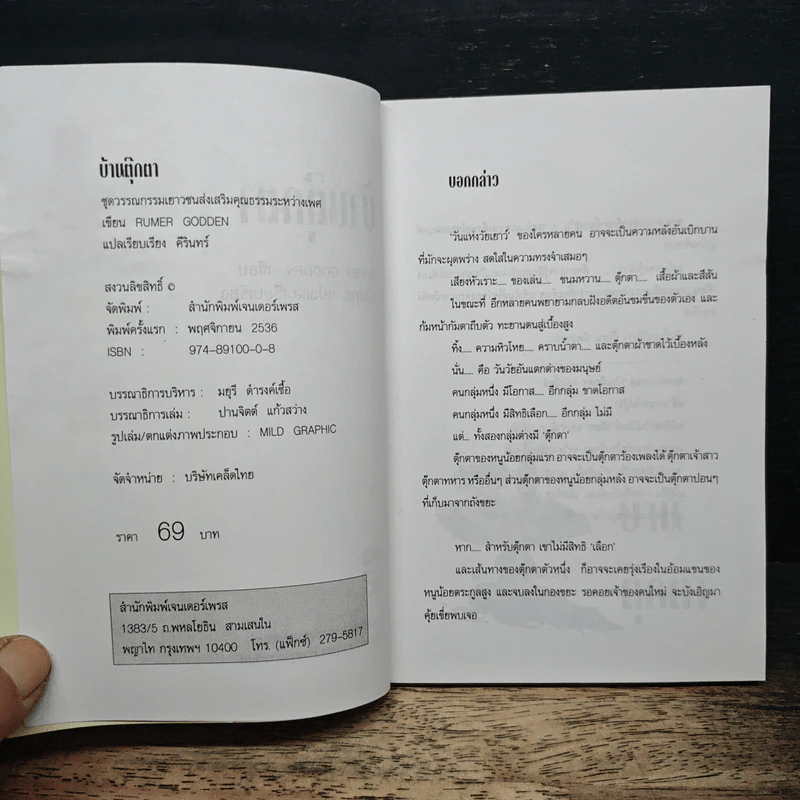 บ้านตุ๊กตา
ชุดวรรณกรรมเยาวชนส่งเสริมคุณธรรมระหว่างเพศ
เขียน RUMER GODDEN
แปลเรียบเรียง คีรินทร์
สงวนลิขสิทธิ์ ©
จัดพิมพ์ : สำนักพิมพ์เจนเดอร์เพรส
พิมพ์ครั้งแรก : พฤศจิกายน 2536
ISBN : 974-89100-0-8
บรรณาธิการบริหาร : มยุรี ดำรงค์เชื้อ
บรรณาธิการเล่ม : ปานจิตต์ แก้วสว่าง
รูปเล่ม/ตกแต่งภาพประกอบ : MILD GRAPHIC
จัดจำหน่าย : บริษัทเคล็ดไทย
ราคา 69 บาท
สำนักพิมพ์เจนเดอร์เพรส
1383/5 ถ.พหลโยธิน สามเสนใน
พญาไท กรุงเทพฯ 10400 โทร. (แฟ็กซ์) 279-5817
บอกกล่าว
'วันแห่งวัยเยาว์' ของใครหลายคน อาจจะเป็นความหลังอันเบิกบาน
ที่มักจะผุดพร่าง สดใสในความทรงจำเสมอๆ
เสียงหัวเราะ..... ของเล่น..... ขนมหวาน..... ตุ๊กตา..... เสื้อผ้าและสีสัน
ในขณะที่ อีกหลายคนพยายามกลบฝังอดีตอันขมขื่นของตัวเอง และ
ก้มหน้ากัมตาถีบตัว ทะยานตนสู่เบื้องสูง
ทิ้ง..... ความหิวโหย..... คราบน้ำตา..... และตุ๊กตาผ้าขาดไว้เบื้องหลัง
นั่น..... คือ วันวัยอันแตกต่างของมนุษย์
คนกลุ่มหนึ่ง มีโอกาส..... อีกกลุ่ม ขาดโอกาส
คนกลุ่มหนึ่ง มีสิทธิเลือก..... อีกกลุ่ม ไม่มี
แต่... ทั้งสองกลุ่มต่างมี 'ตุ๊กตา'
ตุ๊กตาของหนูน้อยกลุ่มแรก อาจจะเป็นตุ๊กตาร้องเพลงได้ ตุ๊กตาเจ้าสาว
ตุ๊กตาทหาร หรืออื่นๆ ส่วนตุ๊กตาของหนูน้อยกลุ่มหลัง อาจจะเป็นตุ๊กตาปอนๆ
ที่เก็บมาจากถังขยะ
หาก..... สำหรับตุ๊กตา เขาไม่มีสิทธิ 'เลือก'
และเส้นทางของตุ๊กตาตัวหนึ่ง ก็อาจจะเคยรุ่งเรืองในอ้อมแขนของ
หนูน้อยตระกูลสูง และจบลงในกองขยะ รอคอยเจ้าของคนใหม่ จะบังเอิญมา
คุ้ยเขี่ยพบเจอ